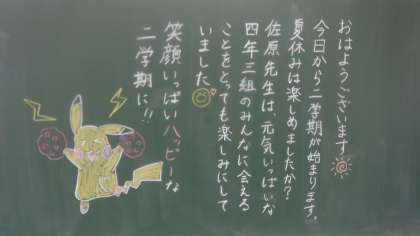 おはようございます
今日から二学期が始まります。
夏休みは楽しめましたか?
佐原先生は、元気いっぱいな
四年三組のみんなに会える
ことをとっても楽しみにして
いました
笑顔いっぱいハッピーな
二学期に!!